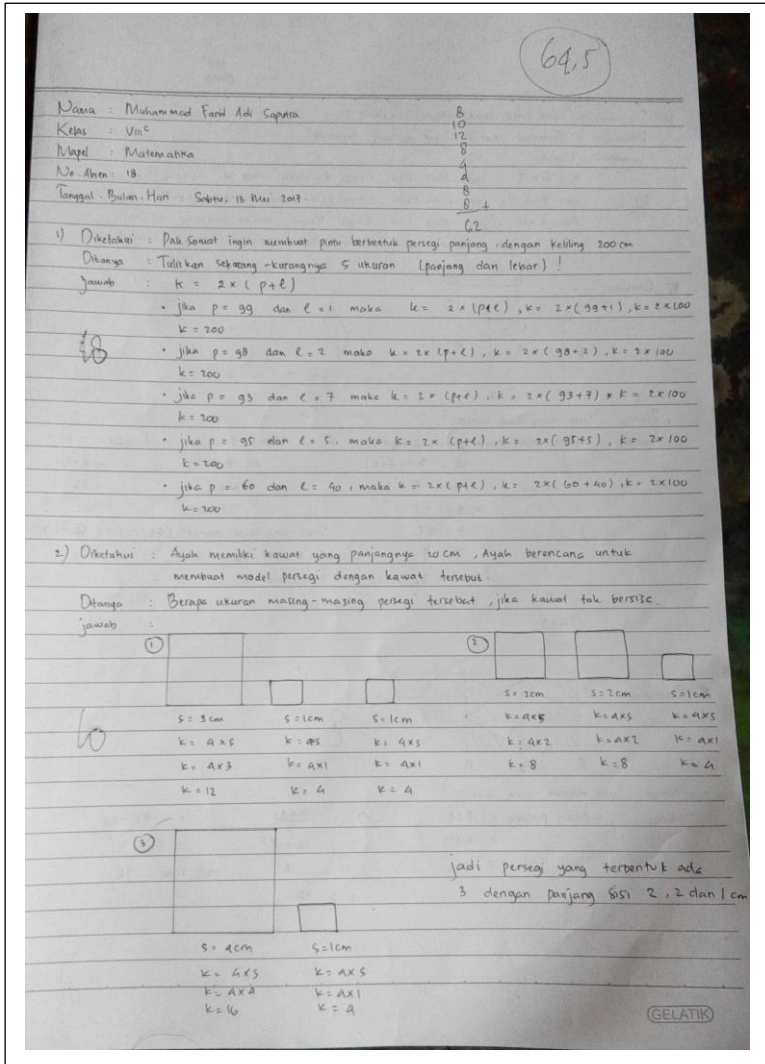 64,5
Nama : Muhammad Farid Adi Saputra
Kelas : VIII C
Mapel : Matematika
No. Absen : 18
Tanggal. Bulan. Hari : Sabtu, 13 Mei 2017.
8
10
12
8
4
4
8
8 +
62
1) Diketahui : Pak Somat ingin membuat pintu berbentuk persegi panjang, dengan keliling 200 cm
Ditanya : Tuliskan sekurang-kurangnya 5 ukuran (panjang dan lebar) !
Jawab : k = 2 x ( p + l )
• jika p = 99 dan l = 1 maka k = 2 x (p+l), k = 2 x (99+1), k = 2 x 100
k = 200
• jika p = 98 dan l = 2 maka k = 2 x (p+l), k = 2 x (98+2), k = 2 x 100
k = 200
• jika p = 93 dan l = 7 maka k = 2 x (p+l), k = 2 x (93+7), k = 2 x 100
k = 200
• jika p = 95 dan l = 5, maka k = 2 x (p+l), k = 2x(95+5), k = 2x 100
k = 200
• jika p = 60 dan l = 40, maka k = 2x(p+l), k = 2x(60+40), k = 2x100
k = 200
8
2) Diketahui : Ayah memiliki kawat yang panjangnya 20 cm, Ayah berencana untuk
membuat model persegi dengan kawat tersebut.
Ditanya : Berapa ukuran masing-masing persegi tersebut, jika kawat tak bersisa.
jawab :
1 2
s = 3 cm s = 1cm s = 1cm s = 2cm s = 2cm s = 1cm
k = 4 x s k = 4s k = 4xs k = 4xs k = 4xs k = 4xs
k = 4 x 3 k = 4x1 k = 4x1 k = 4x2 k = 4x2 k = 4x1
k = 12 k = 4 k = 4 k = 8 k = 8 k = 4
3
jadi persegi yang terbentuk ada
3 dengan panjang sisi 2, 2 dan 1 cm
s = 4cm s = 1cm
k = 4xs k = 4xs
k = 4x4 k = 4x1
k = 16 k = 4
GELATIK